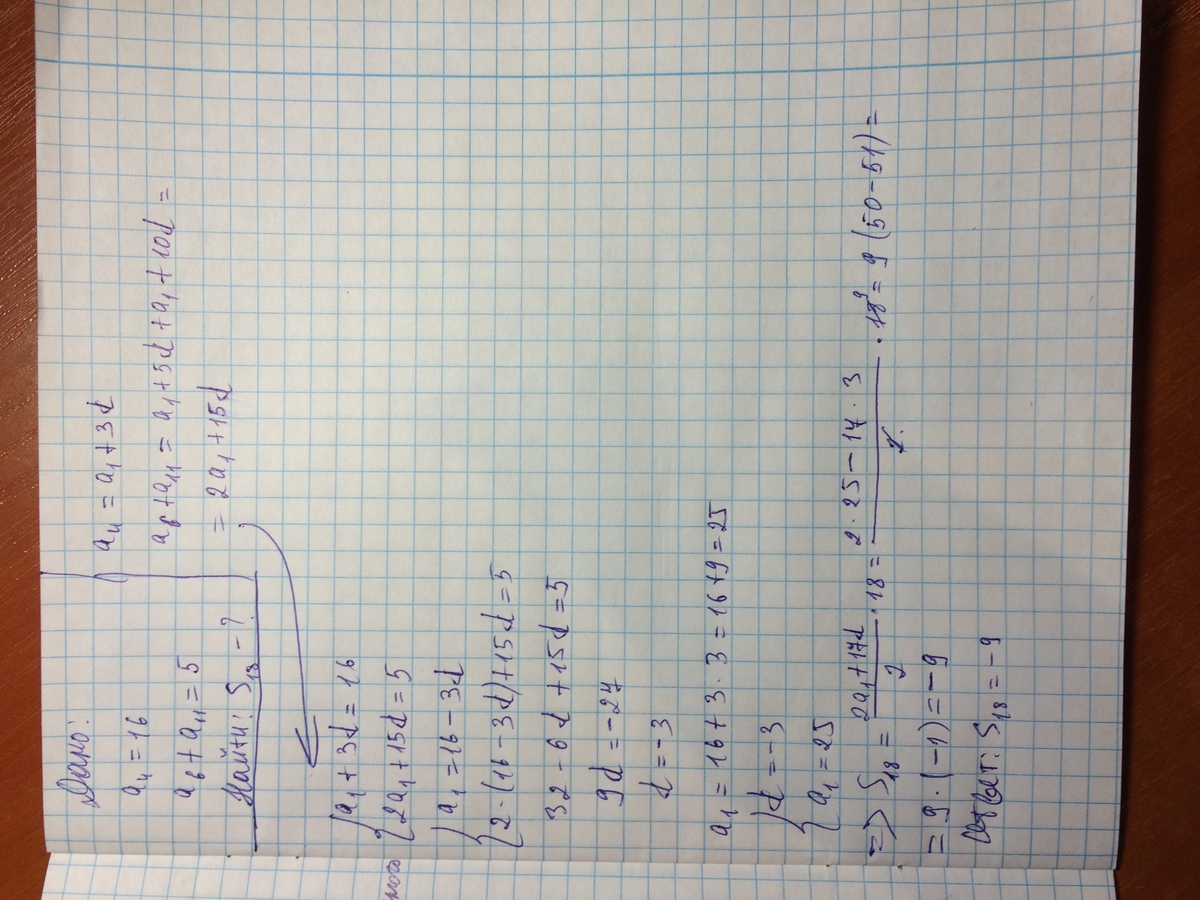 Дано:
a₄ = 16
a₆ + a₁₁ = 5
Найти: S₁₈ - ?
a₄ = a₁ + 3d
a₆ + a₁₁ = a₁ + 5d + a₁ + 10d =
= 2a₁ + 15d
{ a₁ + 3d = 16
{ 2a₁ + 15d = 5
{ a₁ = 16 - 3d
{ 2 · (16 - 3d) + 15d = 5
32 - 6d + 15d = 5
9d = -27
d = -3
a₁ = 16 + 3 · 3 = 16 + 9 = 25
{ d = -3
{ a₁ = 25
=> S₁₈ = (2a₁ + 17d)/2 · 18 = (2 · 25 - 17 · 3)/2 · 18 ⁹ = 9 (50 - 51) =
= 9 · (-1) = -9
Ответ: S₁₈ = -9